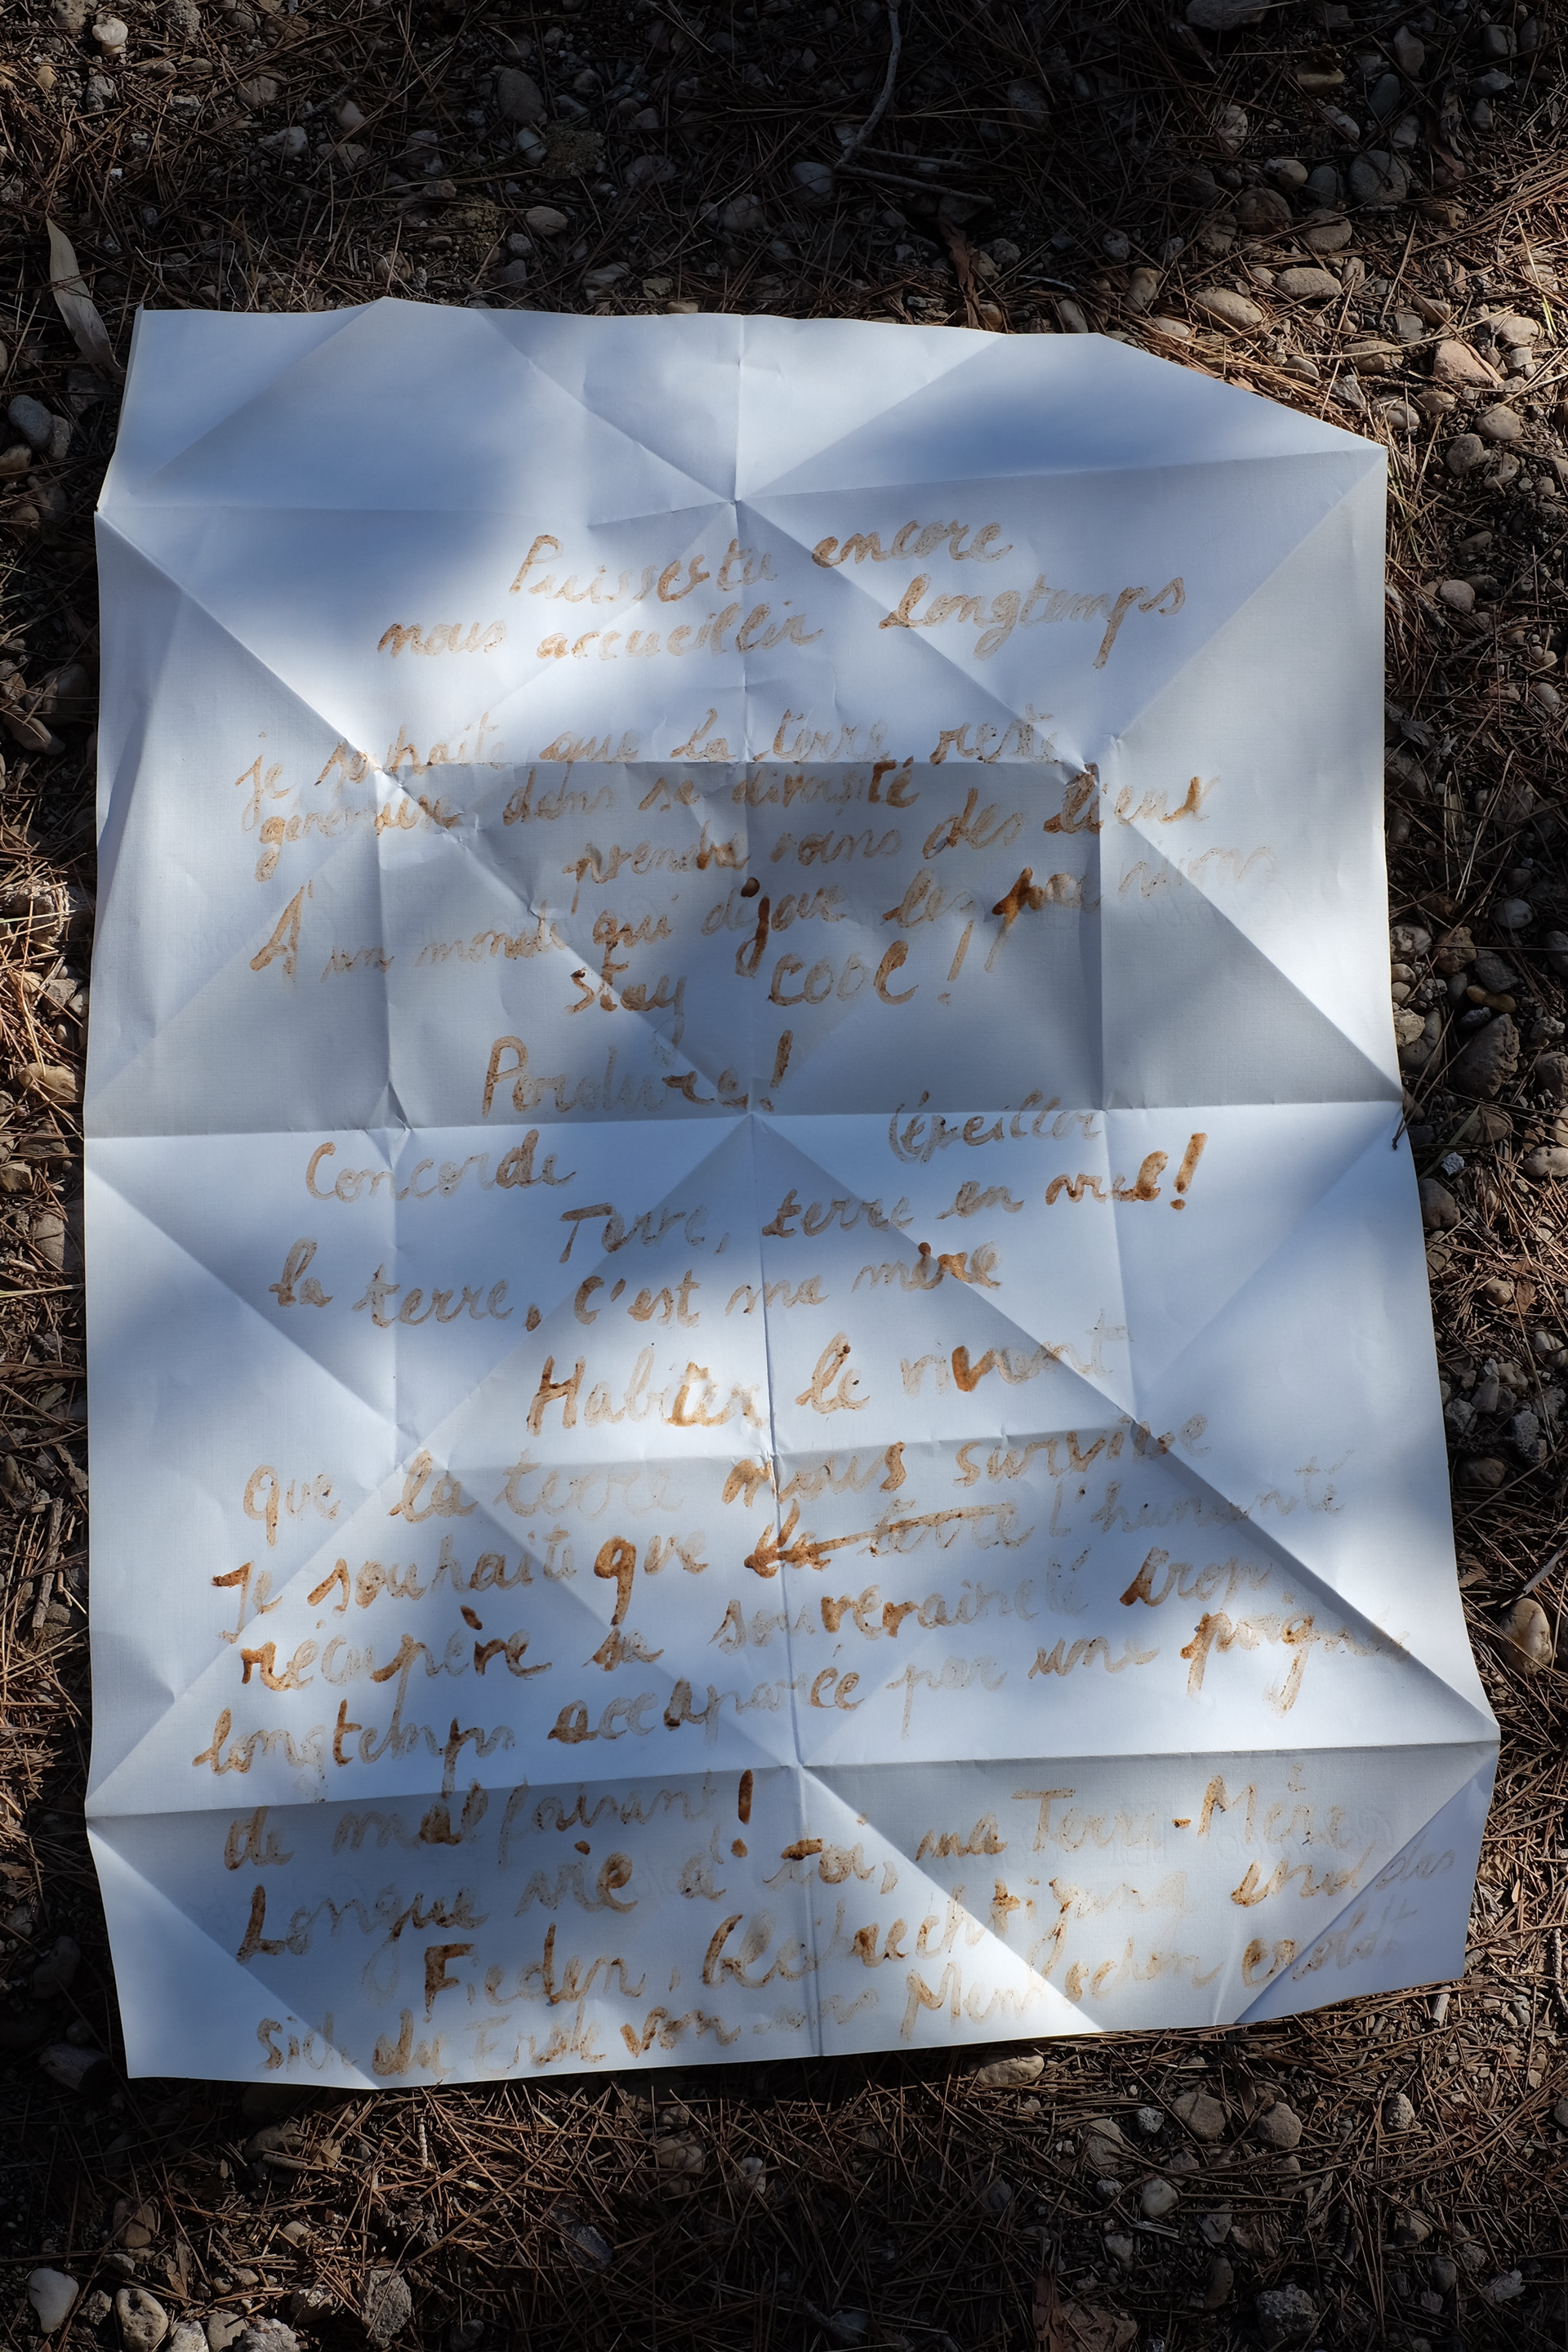 Puisses tu encore
nous accueillir Longtemps
je souhaite que la terre reste
généreuse dans se diversité
prendre soins des lieux
A un monde qui déjoue les
stay COOL !
Perdure !
Concorde
(éveiller
Terre, terre en vue !
la terre, c'est ma mère
Habiter le vivant
Que la terre nous survive
Je souhaite que la terre l'humanité
récupère sa souveraineté trop
longtemps accaparée par une poignée
de malfaisant !
Longue vie à toi, ma Terre-Mère
Frieden, Gleichberechtigung und das
sich die Erde von uns Menschen erholt